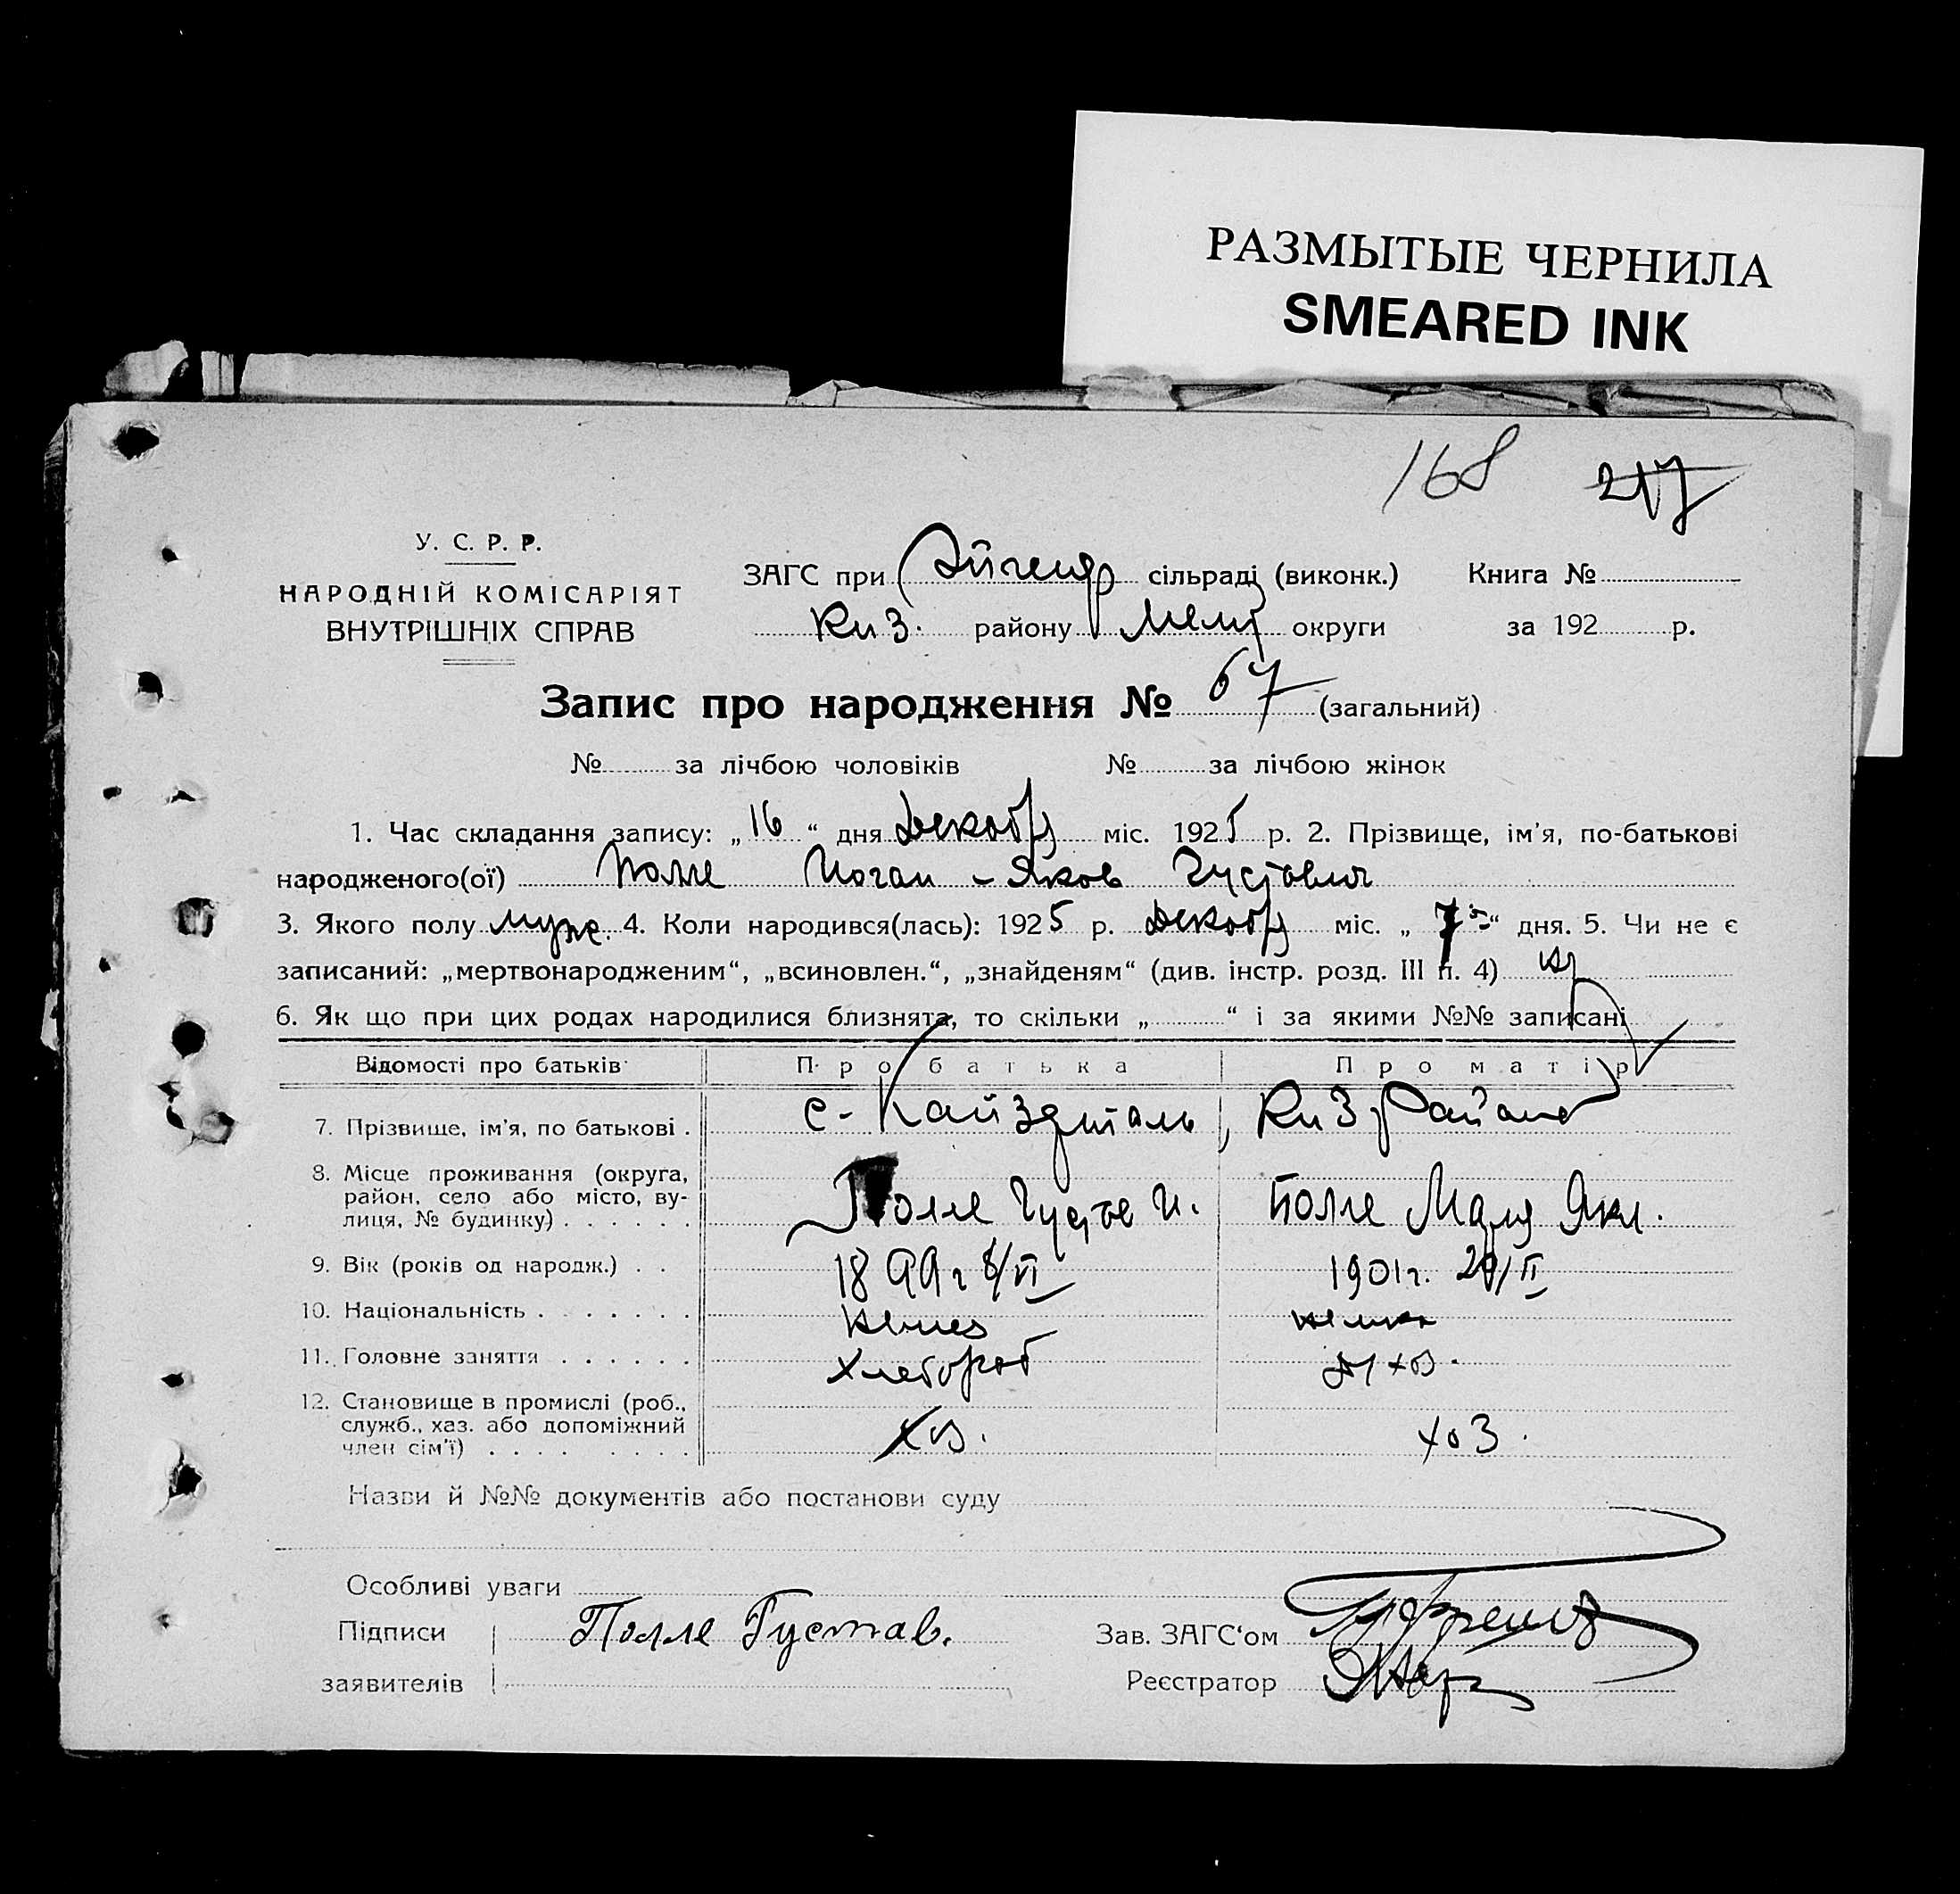 РАЗМЫТЫЕ ЧЕРНИЛА
SMEARED INK
168 217
У. С. Р. Р.
НАРОДНІЙ КОМІСАРІЯТ
ВНУТРІШНІХ СПРАВ
ЗАГС при Эйгенф сільраді (виконк.) Книга №
КиЗ. району Мелит округи за 192 р.
Запис про народження № 67 (загальний)
№ за лічбою чоловіків № за лічбою жінок
1. Час складання запису: „16“ дня Декабря міс. 1925 р. 2. Прізвище, ім'я, по-батькові
народженого(ої) Полле Иоган - Яков Густович
3. Якого полу муж. 4. Коли народився(лась): 1925 р. Декабря міс. „7“ дня. 5. Чи не є
записаний: „мертвонародженим“, „всиновлен.“, „знайденям“ (див. інстр. розд. III п. 4)
6. Як що при цих родах народилися близнята, то скільки „ “ і за якими №№ записані
Відомості про батьків Про батька Про матір
7. Прізвище, ім'я, по батькові . с- Кайзерталь, КиЗ района
8. Місце проживання (округа,
район, село або місто, ву-
лиця, № будинку) . . . . . . Полле Густав И. Полле Мария Якл.
9. Вік (років од народж.) . . 1899 г 8/VI 1901 г. 29/II
10. Національність . . . . . . . немец немка
11. Головне заняття . . . . . . Хлебороб
12. Становище в промислі (роб.,
служб., хаз. або допоміжний
член сім'ї) . . . . . . . . хоз. хоз.
Назви й №№ документів або постанови суду
Особливі уваги
Підписи Полле Густав. Зав. ЗАГС'ом
заявителів Реєстратор